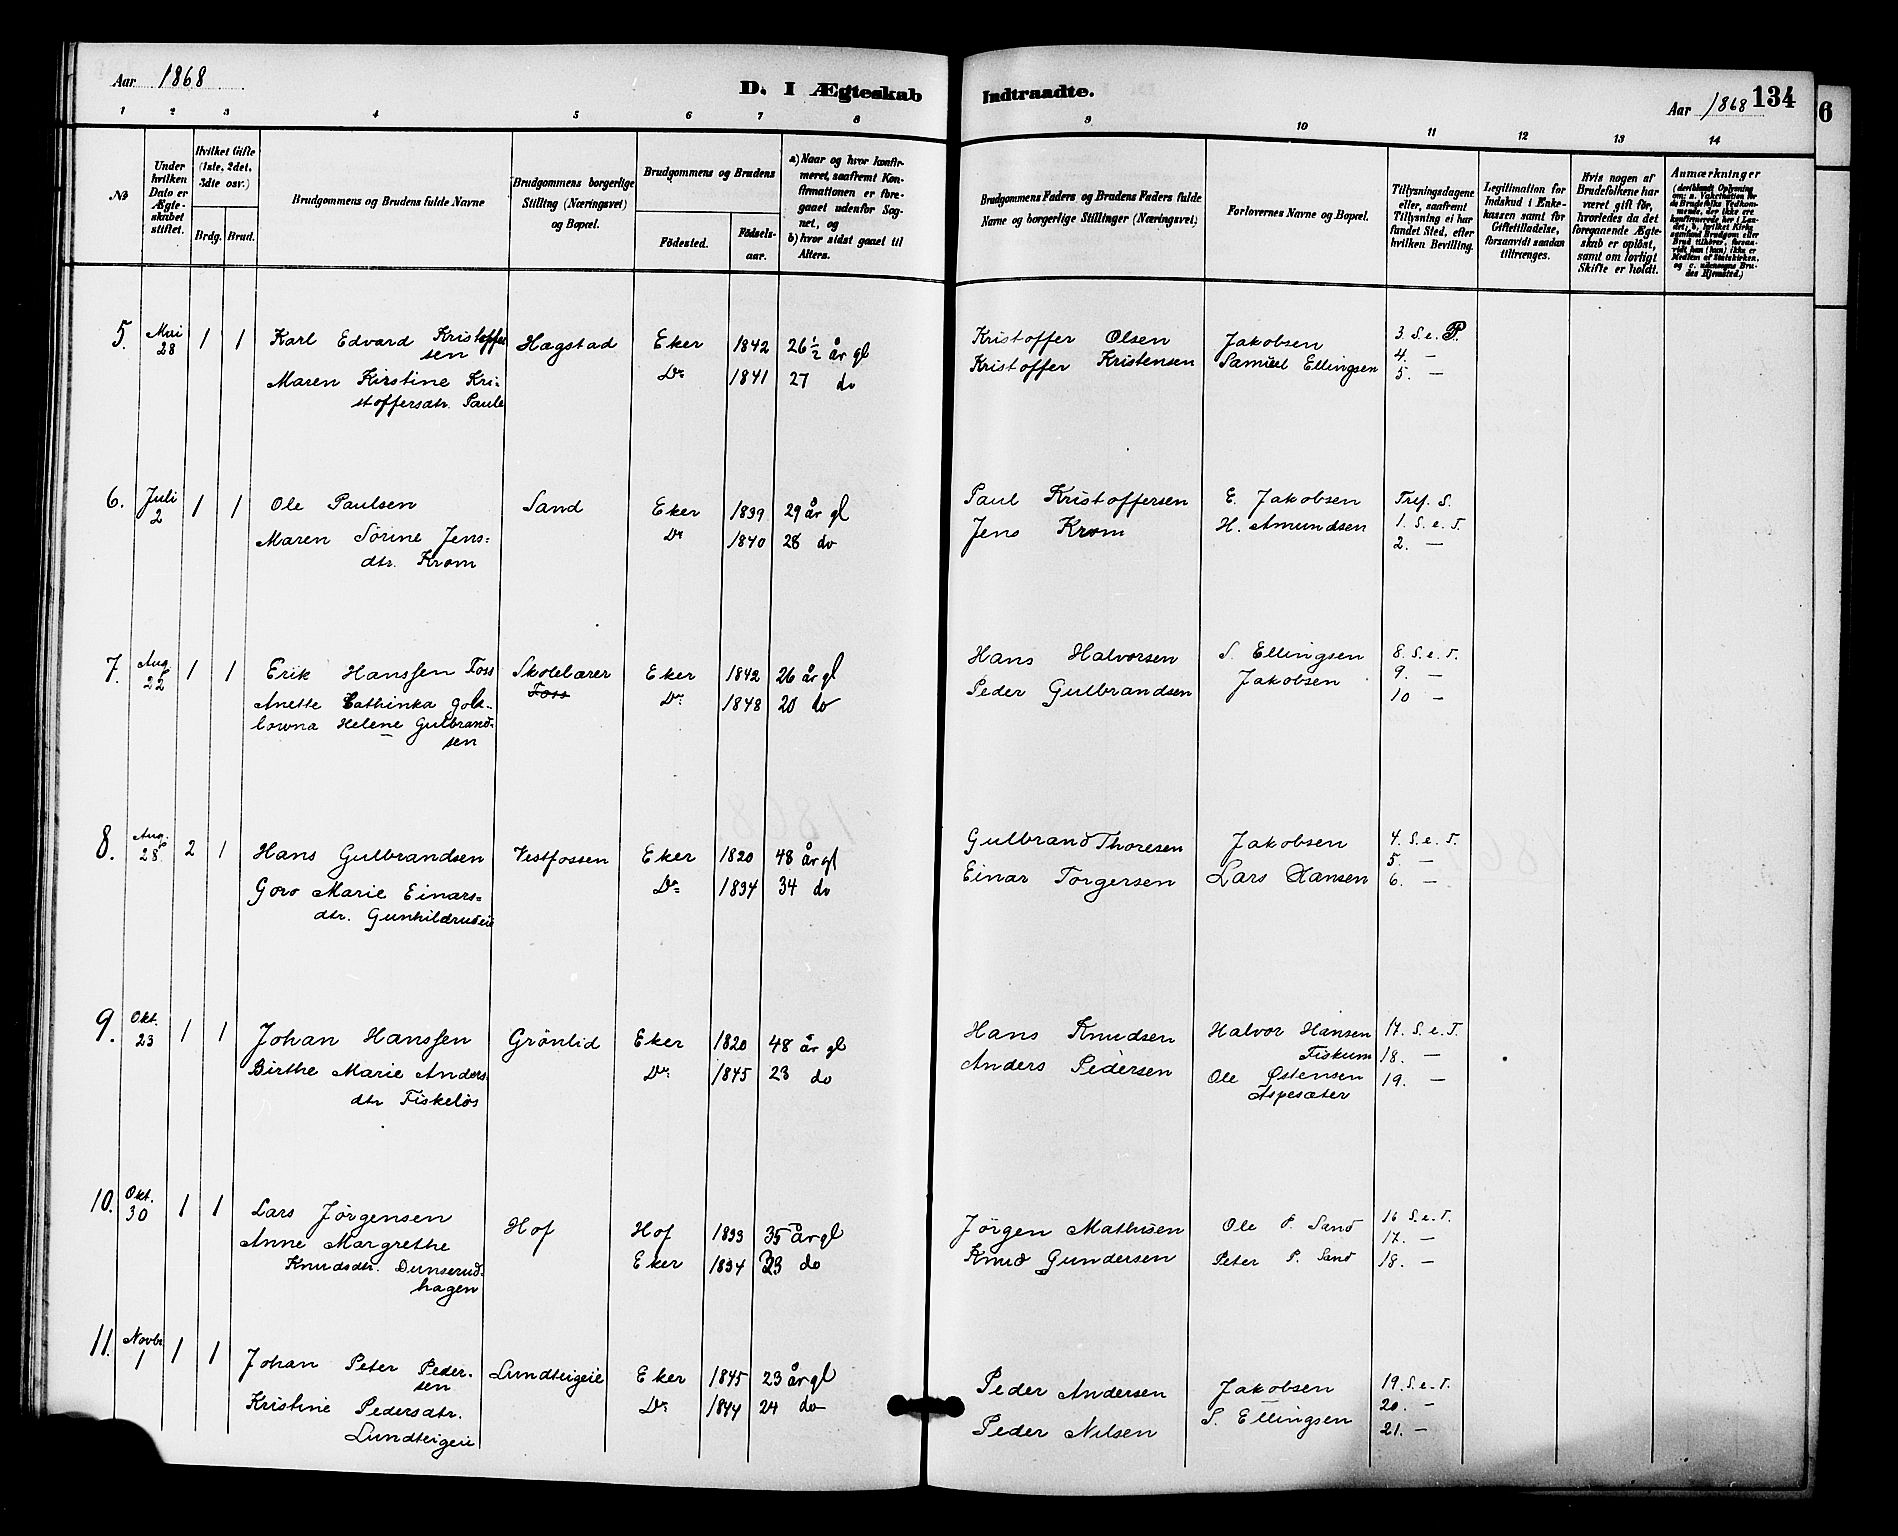 Aar 1868
D. I Ægteskab
Indtraadte.
Aar 1868 134
6
1 2 3 4 5 6 7 8
9 10 11 12 13 14
№
Under hvilken Dato er Ægteskabet stiftet.
Hvilket Gifte (1ste, 2det, 3die osv.)
Brdg. Brud.
Brudgommens og Brudens fulde Navne
Brudgommens borgerlige Stilling (Næringsvei) og Bopæl.
Brudgommens og Brudens
Födested. Födsels-aar.
a) Naar og hvor konfirmeret, saafremt Konfirmationen er foregaaet udenfor Sognet, og
b) hvor sidst gaaet til Alters.
Brudgommens Faders og Brudens Faders fulde Navne og borgerlige Stillinger (Næringsvei)
Forlovernes Navne og Bopæl.
Tillysningsdagene eller, saafremt Tillysning ei har fundet Sted, efter hvilken Bevilling.
Legitimation for Indskud i Enkekassen samt for Giftetilladelse, forsaavidt saadan tiltrænges.
Hvis nogen af Brudefolkene har været gift før, hvorledes da det foregaaende Ægteskab er oplöst, samt om lovligt Skifte er holdt.
Anmærkninger
5. Mai 28 1 1 Karl Edvard Kristoffersen Hagstad Eker 1842 26½ år gl Kristoffer Olsen Jakobsen 3. S.e.P.
Maren Kirstine Kristoffersdtr. Paule Do 1841 27 do Kristoffer Kristensen Samuel Ellingsen 4. —
5. —
6. Juli 2 1 1 Ole Paulsen Sand Eker 1839 29 år gl Paul Kristoffersen E. Jakobsen Tref. S.
Maren Sörine Jens=dtr. Krom Do 1840 28 do Jens Krom H. Amundsen 1. S.e.T.
2. —
7. Aug 22 1 1 Erik Hanssen Foss Skolelærer Foss Eker 1842 26 år gl Hans Halvorsen S. Ellingsen 8. S.e.T.
Anette Cathinka Helene Gulbrandsen Do 1848 20 do Peder Gulbrandsen Jakobsen 9. —
10 —
8. Aug. 28 2 1 Hans Gulbrandsen Vestfossen Eker 1820 48 år gl Gulbrand Thoresen Jakobsen 4. S.e.T.
Goro Marie Einars=dtr. Gunhildrudeie Do 1834 34 do Einar Torgersen Lars Hansen 5. —
6. —
9. Okt. 23 1 1 Johan Hanssen Grönlid Eker 1820 48 år gl Hans Knudsen Halvor Hansen Fiskum 17. S.e.T.
Birthe Marie Andersdtr Fiskelös Do 1845 23 do Anders Pedersen Ole Østensen Aspesæter 18. —
19. —
10. Okt. 30 1 1 Lars Jørgensen Hof Hof 1833 35 år gl Jörgen Mathisen Ole P. Sand 16 S.e.T.
Anne Margrethe Knudsdtr. Dunserudhagen Eker 1834 33 do Knud Gundersen Peter P. Sand 17. —
18. —
11. Novbr 1 1 1 Johan Peter Pedersen Lundteigeie Eker 1845 23 år gl Peder Andersen Jakobsen 19. S.e.T.
Kristine Pedersdtr. Lundteigeie Do 1844 24 do Peder Nilsen S. Ellingsen 20. —
21. —